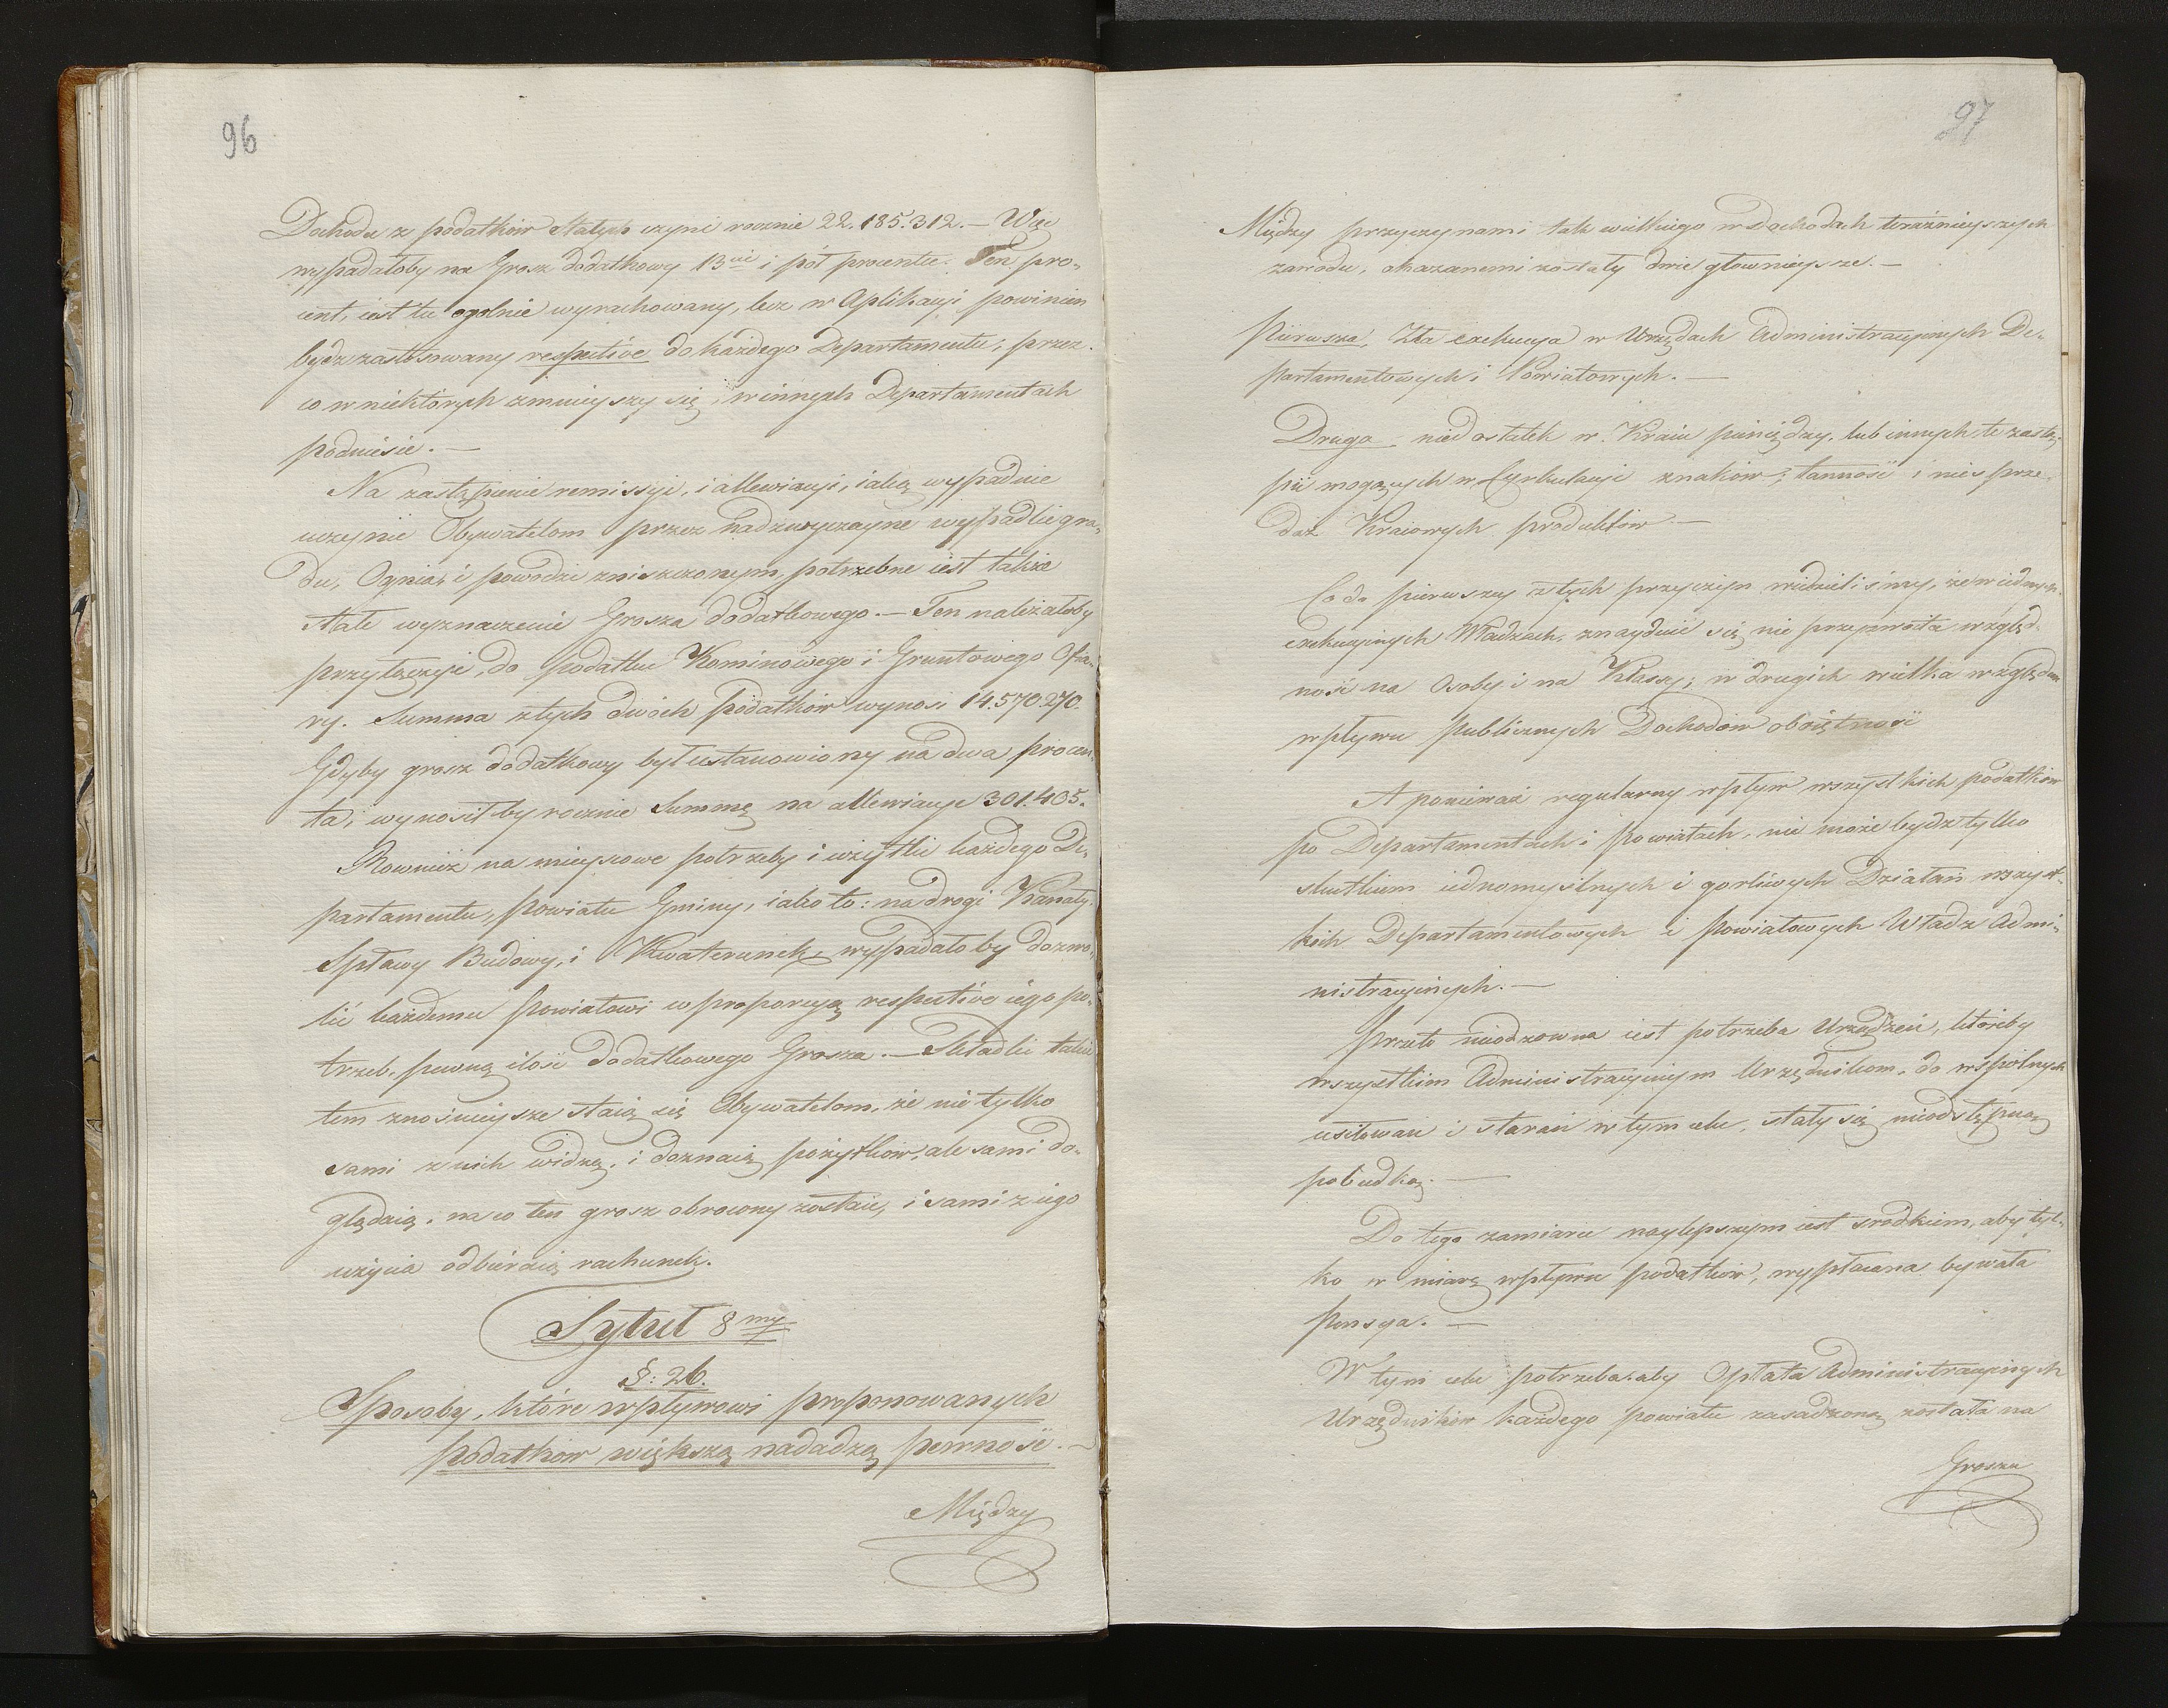 96
Dochodu z podatków stałych czyni rocznie 22.185.312. — Więc
wypadałoby na Grosz dodatkowy 13cie i pół procentu. Ten pro-
cent, iest tu ogólnie wyrachowany, lecz w Aplikacyi powinien
bydz zastosowany respective do każdego Departamentu; przez
co w niektórych zmnieyszy się, w innych Departamentach
podniesie. —
Na zastąpienie remissyi, i allewiacyi, iakie wypadnie
uczynić Obywatelom przez nadzwyczayne wypadki gra-
du, Ognia, i powodzi zniszczonym, potrzebne iest także
stałe wyznaczenie Grosza dodatkowego. — Ten należałoby
przyłączyć do podatku Kominowego i Gruntowego Ofia-
ry. Summa z tych dwóch podatków wynosi 14.570.270.
Gdyby grosz dodatkowy był ustanowiony na dwa procen-
ta, wynosiłby rocznie Summę na allewiacye 301.405.
Rownież na mieyscowe potrzeby i użytki każdego De-
partamentu, Powiatu Gminy, iako to: na drogi Kanały
Spławy Budowy, i Kwaterunek, wypadałoby dozwo-
lić każdemu Powiatowi w proporcyą respective iego po-
trzeb, pewną ilość dodatkowego Grosza. — Składki takie
tem znośnieysze staią się Obywatelom, że nie tylko
sami z nich widzą, i doznaią pożytków, ale sami do-
glądaią, na co ten grosz obrocony zostaie, i sami z iego
użycia odbieraią rachunek.
Tytuł 8my
§: 26.
Sposoby, które wpływowi proponowanych
podatków większą nadadzą pewność. —
Między
97
Między przyczynami tak wielkiego w Dochodach teraźnieyszych
zawodu, okazanemi zostały dwie głownieysze. —
Pierwsza, Zła exekucya w Urzędach Administracyinych De-
partamentowych i Powiatowych. —
Druga niedostatek w Kraiu pieniędzy, lub innych te zastą-
pić mogących w Cyrkulacyi znaków; tanność i niesprze-
daż Kraiowych produktów. —
Co do pierwszey z tych przyczyn widzieliśmy, że w iednych
exekucyinych Władzach, znayduie się nie przyzwoita względ-
ność na Osoby i na Klassy; w drugich wielka względem
wpływu publicznych Dochodów oboiętność
A ponieważ regularny wpływ wszystkich podatków
po Departamentach i powiatach, nie może bydz tylko
skutkiem iednomyślnych i gorliwych Działań wszyst-
kich Departamentowych i Powiatowych Władz Admi-
nistracyinych. —
Przeto nieodzowna iest potrzeba Urządzeń, któreby
wszystkim Administracyinym Urzędnikom, do wspólnych
usiłowań i starań w tym celu, stały się nieodstępną
pobudką. —
Do tego zamiaru naylepszym iest srodkiem, aby tyl-
ko w miarę wpływu podatków, wypłacana bywała
Pensya. —
W tym celu potrzeba aby Opłata Administracyinych
Urzędników każdego Powiatu zasadzoną została na
Groszu